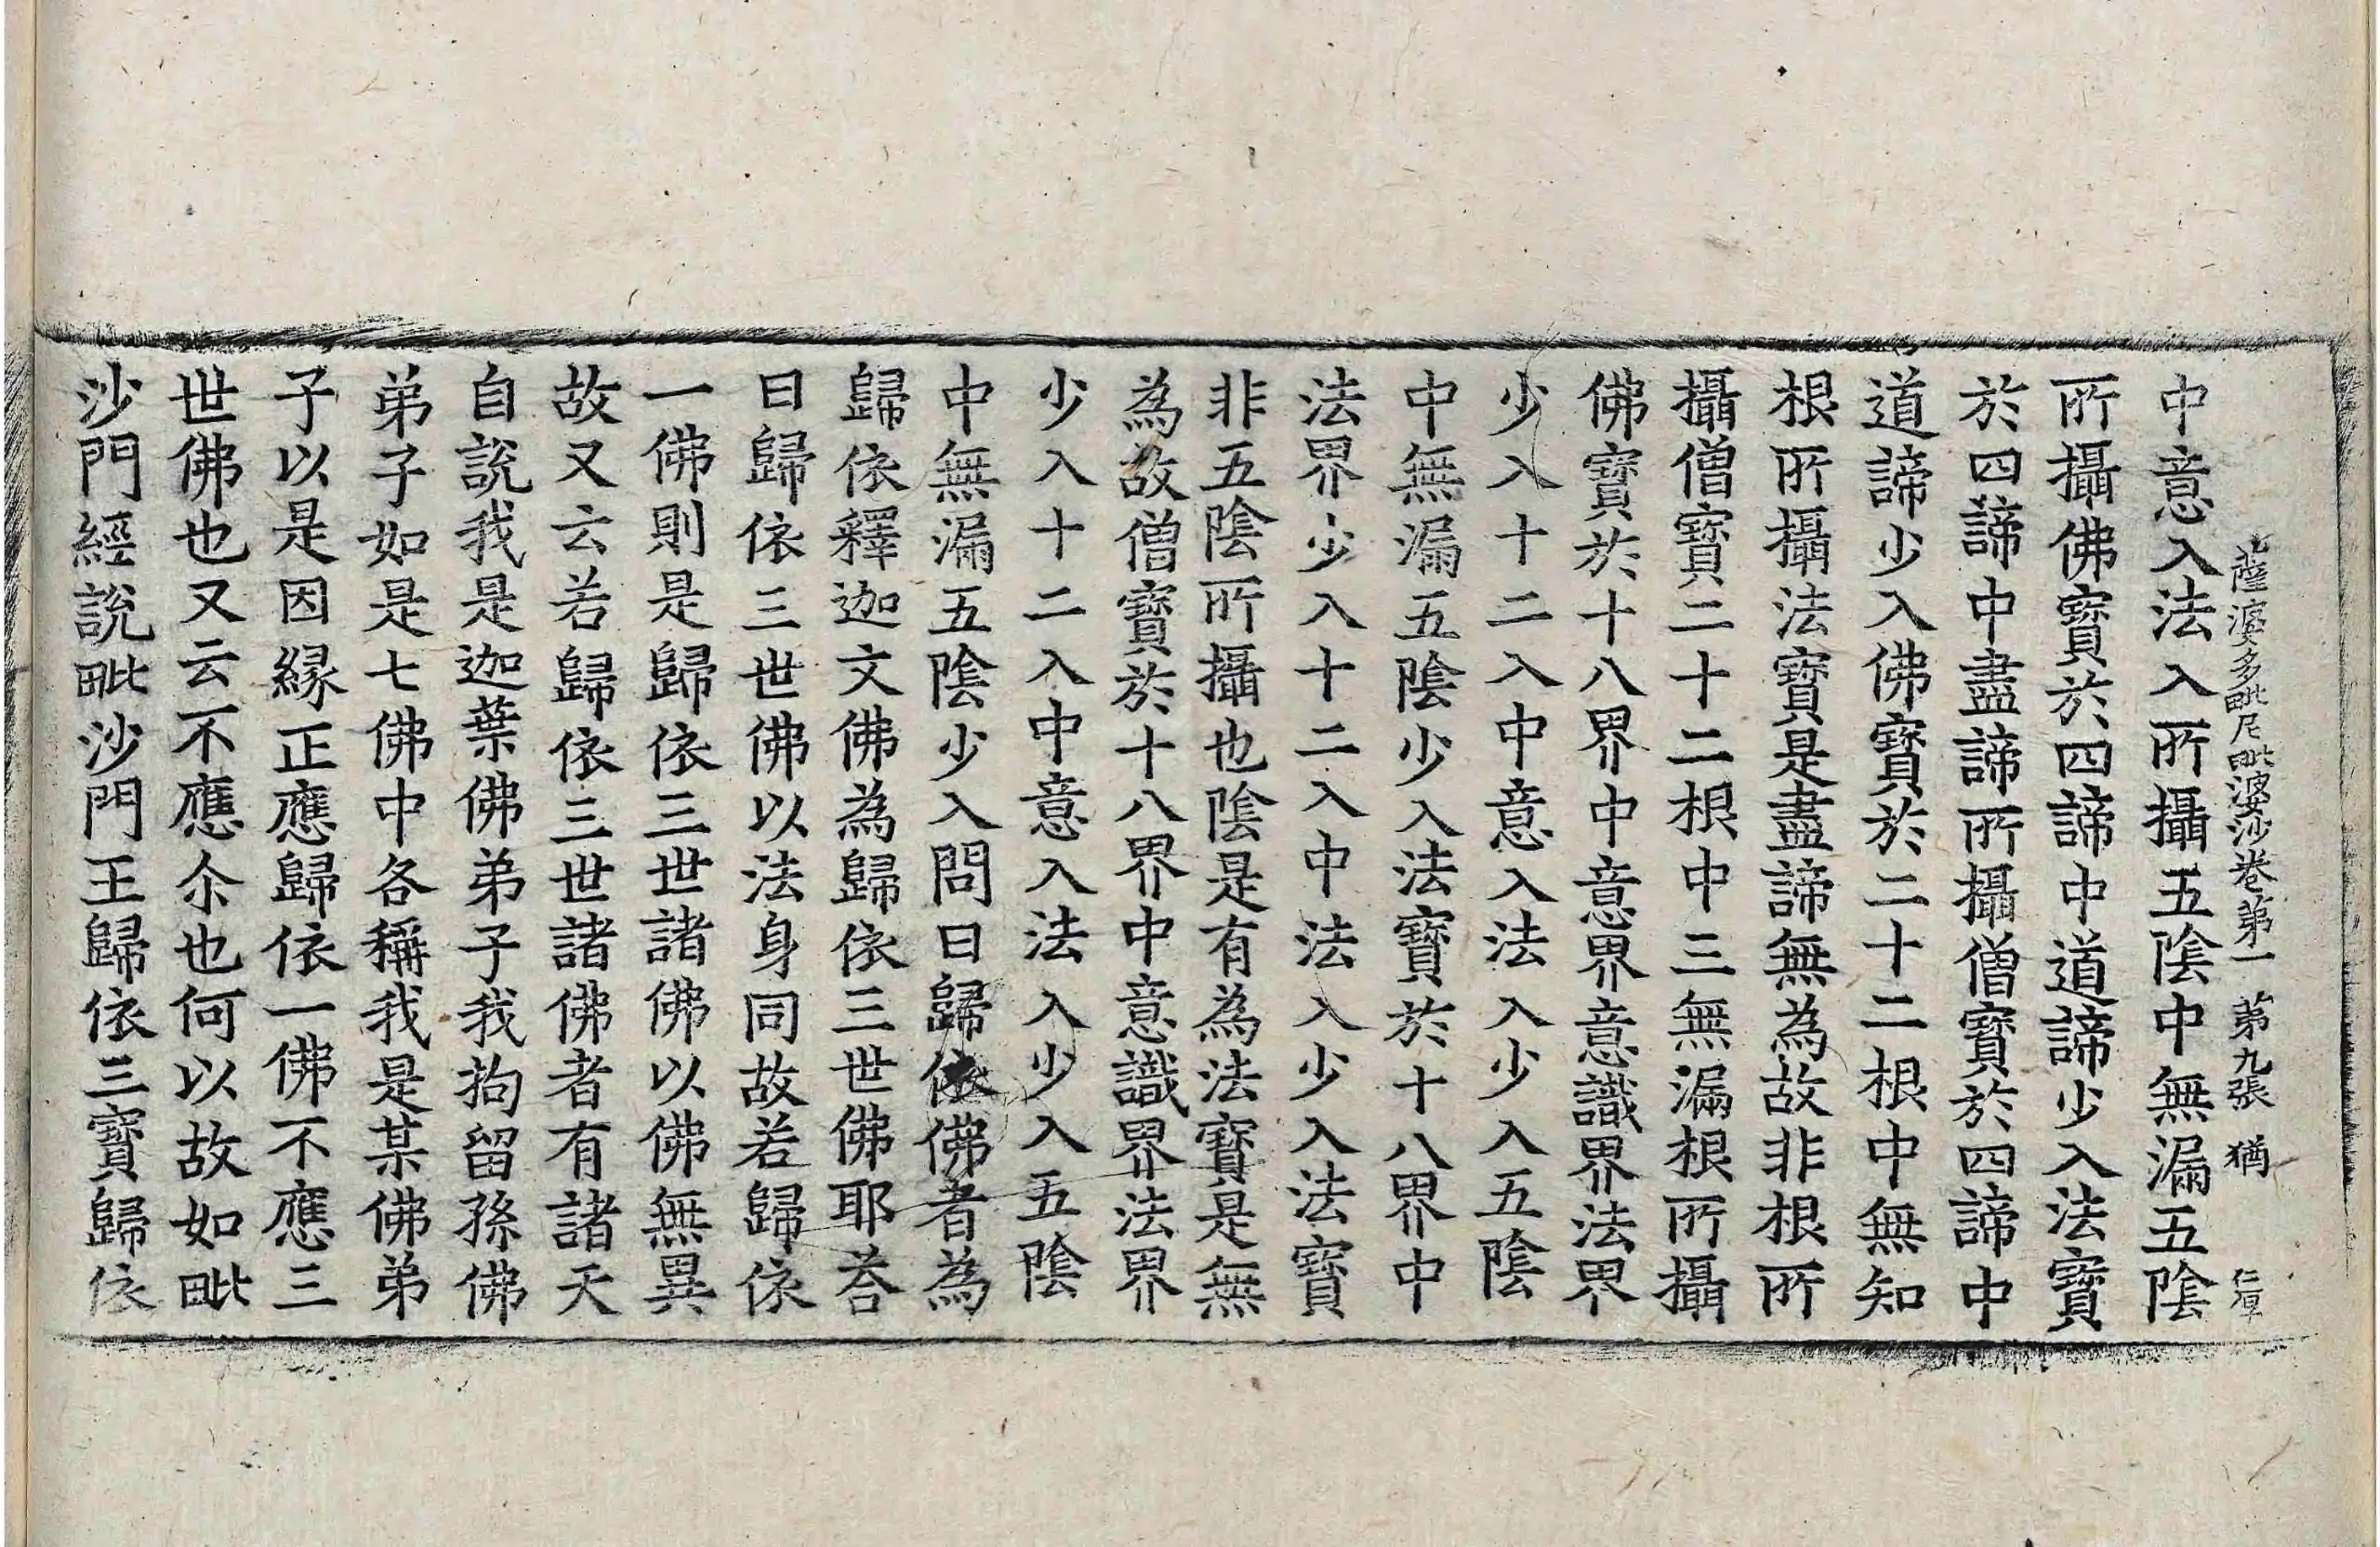 薩婆多毗尼毗婆沙卷第一 第九張 猶
中意入法入所攝五陰中無漏五陰
所攝佛寶於四諦中道諦少入法寶
於四諦中盡諦所攝僧寶於四諦中
道諦少入佛寶於二十二根中無知
根所攝法寶是盡諦無為故非根所
攝僧寶二十二根中三無漏根所攝
佛寶於十八界中意界意識界法界
少入十二入中意入法入少入五陰
中無漏五陰少入法寶於十八界中
法界少入十二入中法入少入法寶
非五陰所攝也陰是有為法寶是無
為故僧寶於十八界中意識界法界
少入十二入中意入法入少入五陰
中無漏五陰少入問曰歸依佛者為
歸依釋迦文佛為歸依三世佛耶荅
曰歸依三世佛以法身同故若歸依
一佛則是歸依三世諸佛以佛無異
故又云若歸依三世諸佛者有諸天
自說我是迦葉佛弟子我拘留孫佛
弟子如是七佛中各稱我是某佛弟
子以是因緣正應歸依一佛不應三
世佛也又云不應尒也何以故如毗
沙門經說毗沙門王歸依三寶歸依